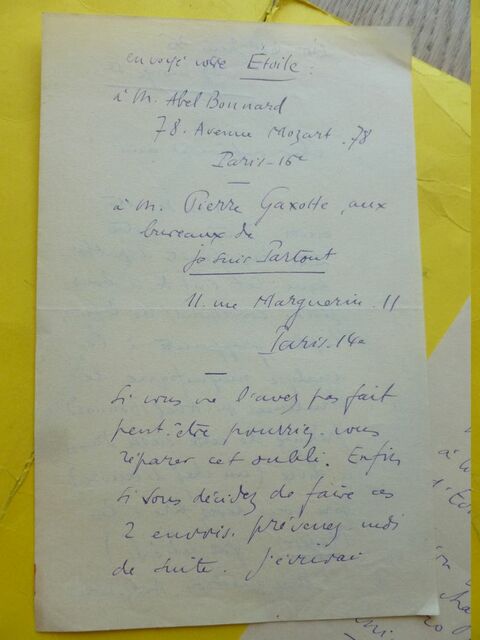 envoyé votre Étoile :
à M. Abel Bonnard
78. Avenue Mozart. 78
Paris-16e
—
à M. Pierre Gaxotte, aux
bureaux de
je suis Partout
11. rue Marguerin. 11
Paris. 14e
—
Si vous ne l'avez pas fait
peut-être pourriez-vous
réparer cet oubli. Enfin
si vous décidez de faire ces
2 envois. prévenez moi
de suite. J'écrirai